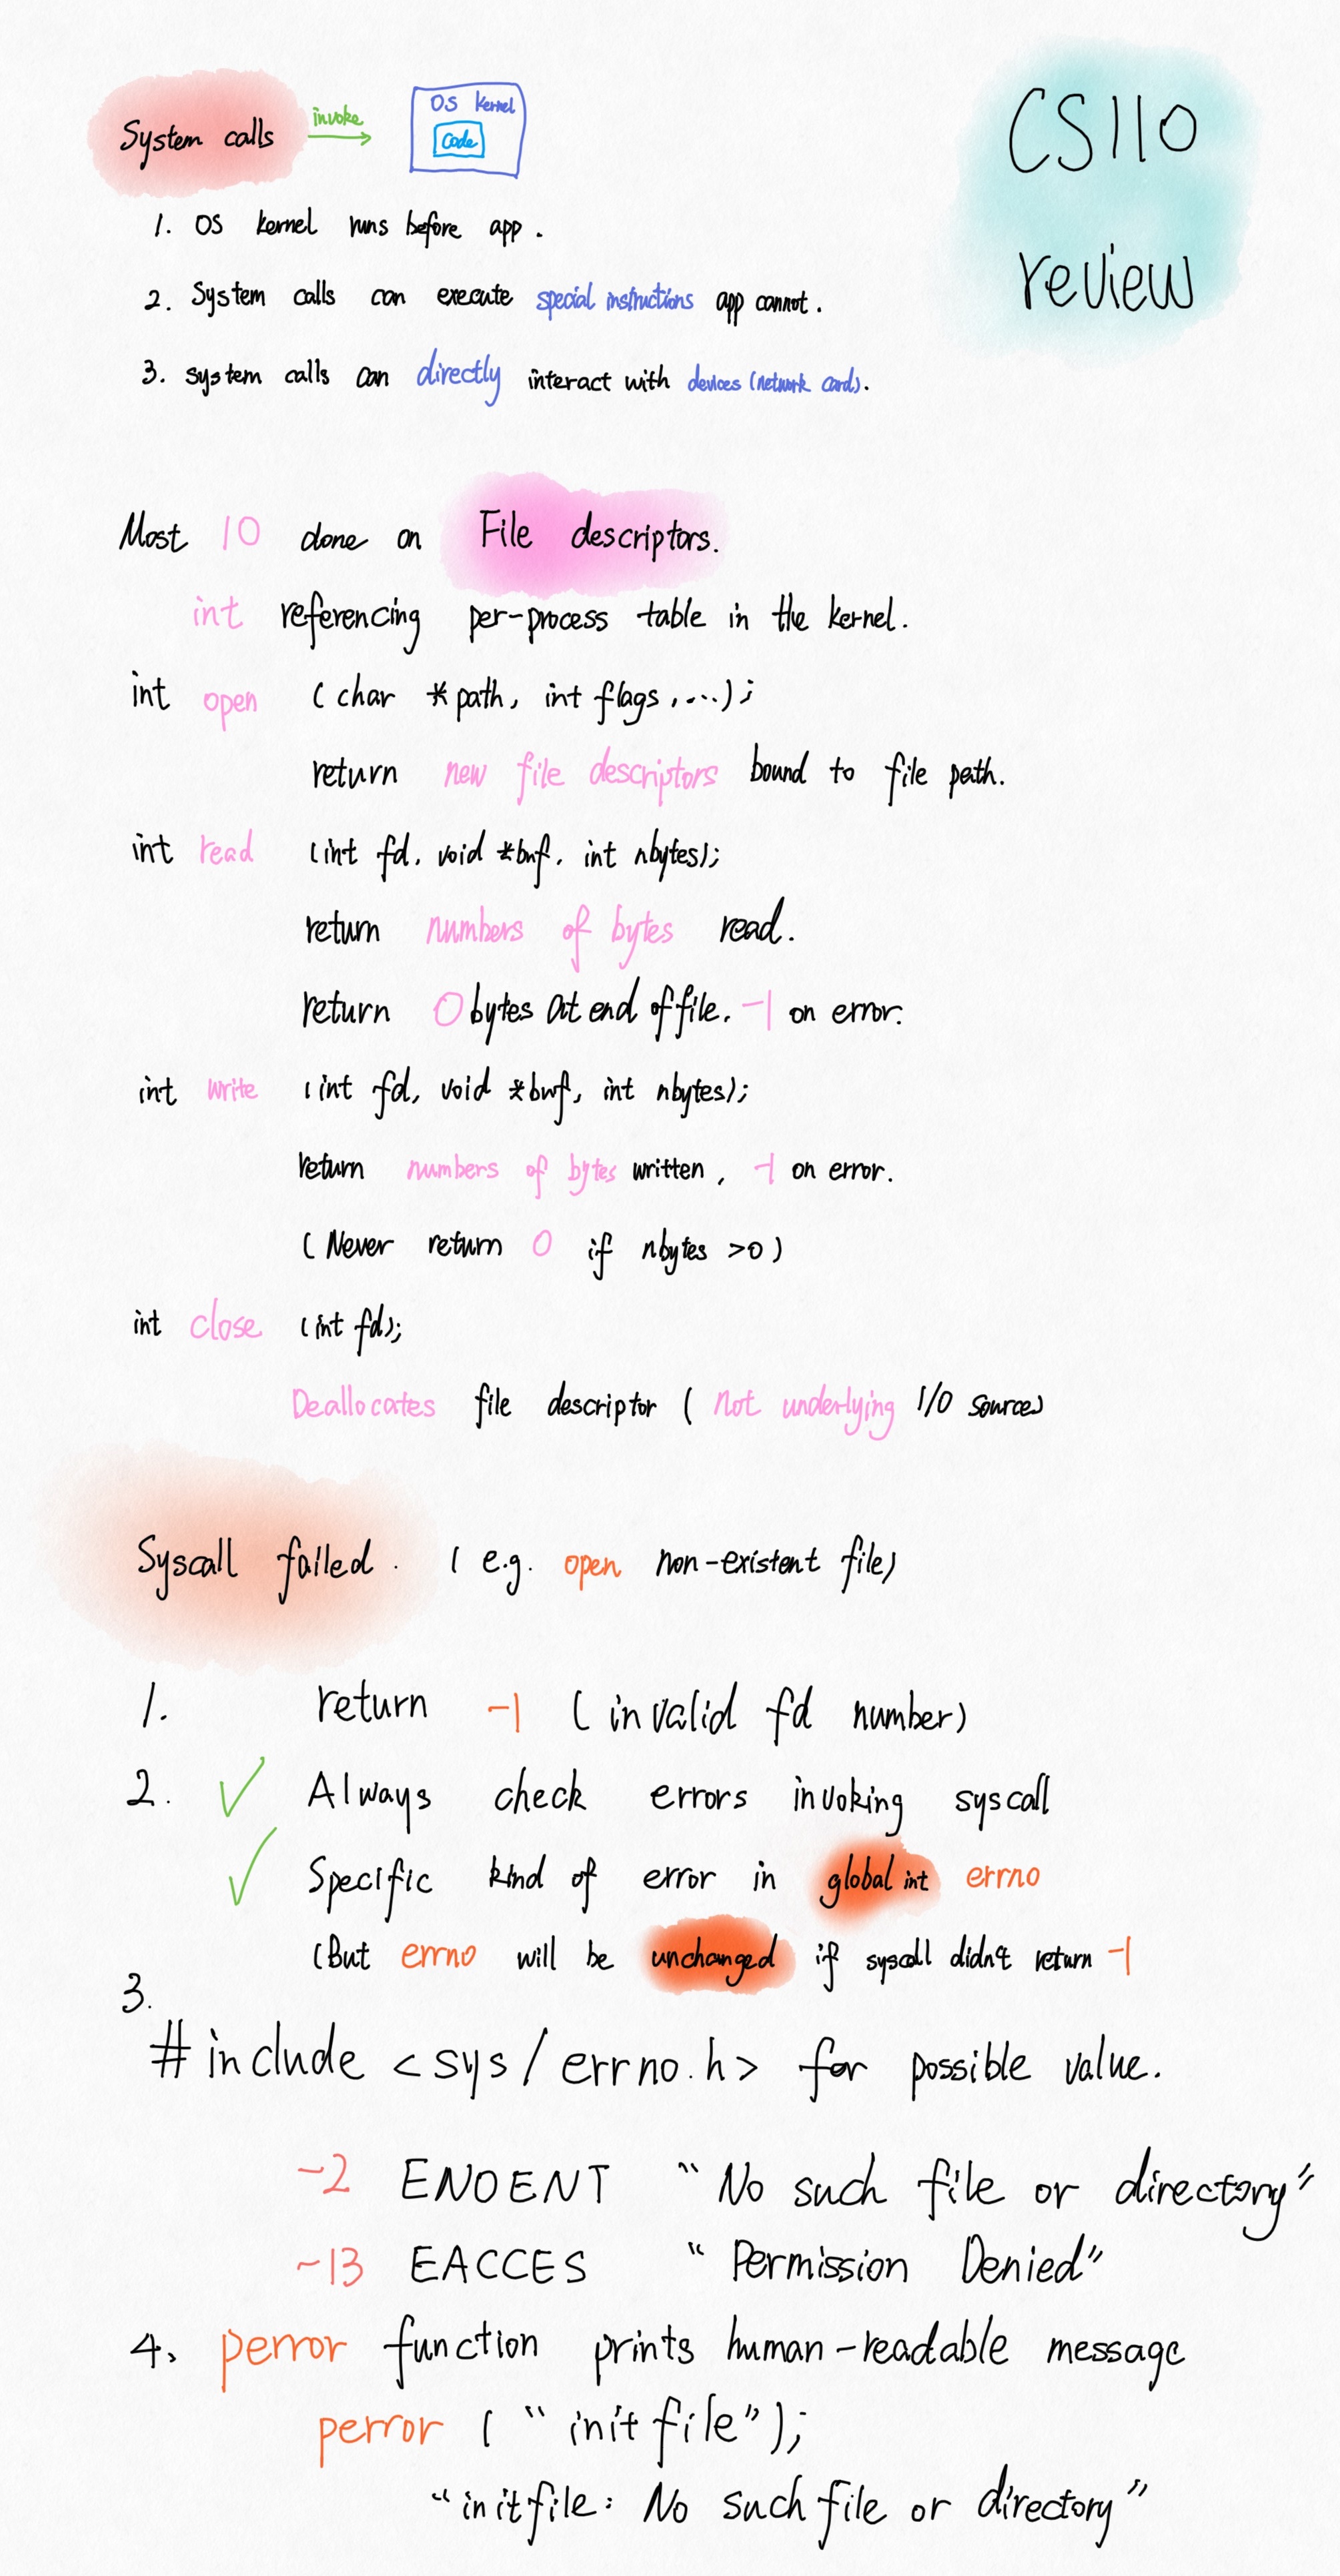 CS110
review
System calls invoke OS kernel
code
1. OS kernel runs before app.
2. System calls can execute special instructions app cannot.
3. system calls can directly interact with devices (network card).
Most IO done on File descriptors.
int referencing per-process table in the kernel.
int open (char *path, int flags, ...);
return new file descriptors bound to file path.
int read (int fd, void *buf, int nbytes);
return numbers of bytes read.
return 0 bytes at end of file. -1 on error.
int write (int fd, void *buf, int nbytes);
return numbers of bytes written, -1 on error.
(Never return 0 if nbytes >0)
int close (int fd);
Deallocates file descriptor (not underlying I/O source)
Syscall failed. (e.g. open non-existent file)
1. return -1 (invalid fd number)
2. ✓ Always check errors invoking syscall
✓ Specific kind of error in global int errno
(But errno will be unchanged if syscall didn't return -1
3.
#include <sys/errno.h> for possible value.
-2 ENOENT "No such file or directory"
-13 EACCES "Permission Denied"
4. perror function prints human-readable message
perror ("initfile");
"initfile: No such file or directory"